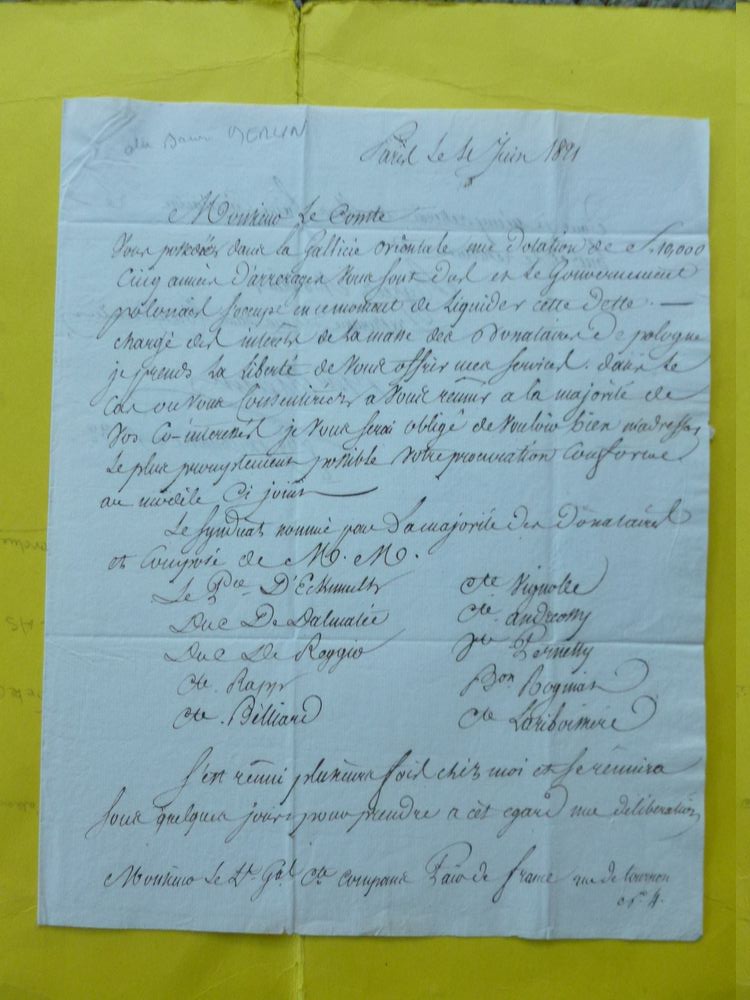 Paris Le 11 Juin 1821
Monsieur Le Comte
Vous possedéz dans la Gallicie orientale une Dotation de f. 10,000
Cinq années D'arrerages Vous sont Dus et Le Gouvernement
polonais s'occupe en ce moment de Liquider cette Dette. —
chargé des interêts de la masse des Donataires De pologne
je prends La Liberté de Vous offrir mes services. dans Le
Cas ou Vous Consentiriez a Vous reunir a la majorité de
Vos Co-interessés je Vous serai obligé de Vouloir bien m'adresser
Le plus promptement possible Votre procuration Conforme
au modèle Ci joint
Le Syndicat nommé par La majorité des Donataires
et Composé de M. M.
Le Pce D'Eckmulh
Duc De Dalmatie
Duc De Reggio
Cte Rapp
Cte Bélliard
Cte Vignolle
Cte andreossy
Pernetty
Bon Rogniat
Cte Lariboissiere
S'est réuni plusieurs fois chez moi et se réunira
sous quelques jours pour prendre a cet egard une déliberation
Monsieur Le Lt Gal Cte Compans Pair de france rue de tournon
no 4.